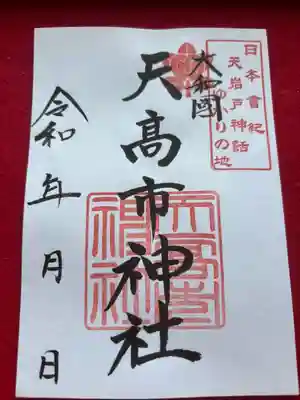 日本書紀
天岩戸神話
ゆかりの地
大和國
天高市神社
令和 年 月 日